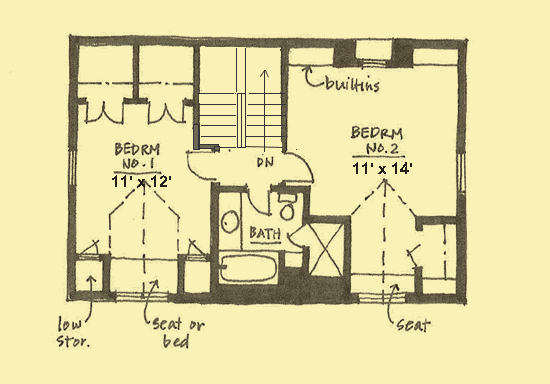 builtins
BEDRM
NO. 1
11' x 12'
DN
BEDRM
NO. 2
11' x 14'
BATH
low
stor.
seat or
bed
seat